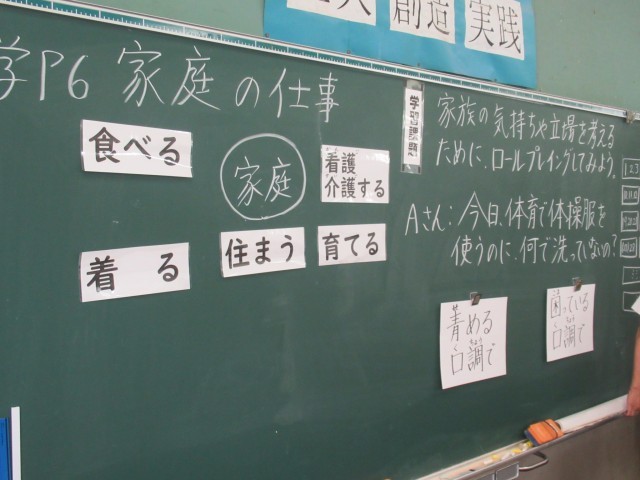 創造
実践
学P6 家庭の仕事
食べる
家庭
看護
介護する
着る
住まう
育てる
学習課題
家族の気持ちや立場を考える
ために、ロールプレイングしてみよう。
Aさん：今日、体育で体操服を
使うのに、何で洗っていないの？
責める
口調で
困っている
口調で
123